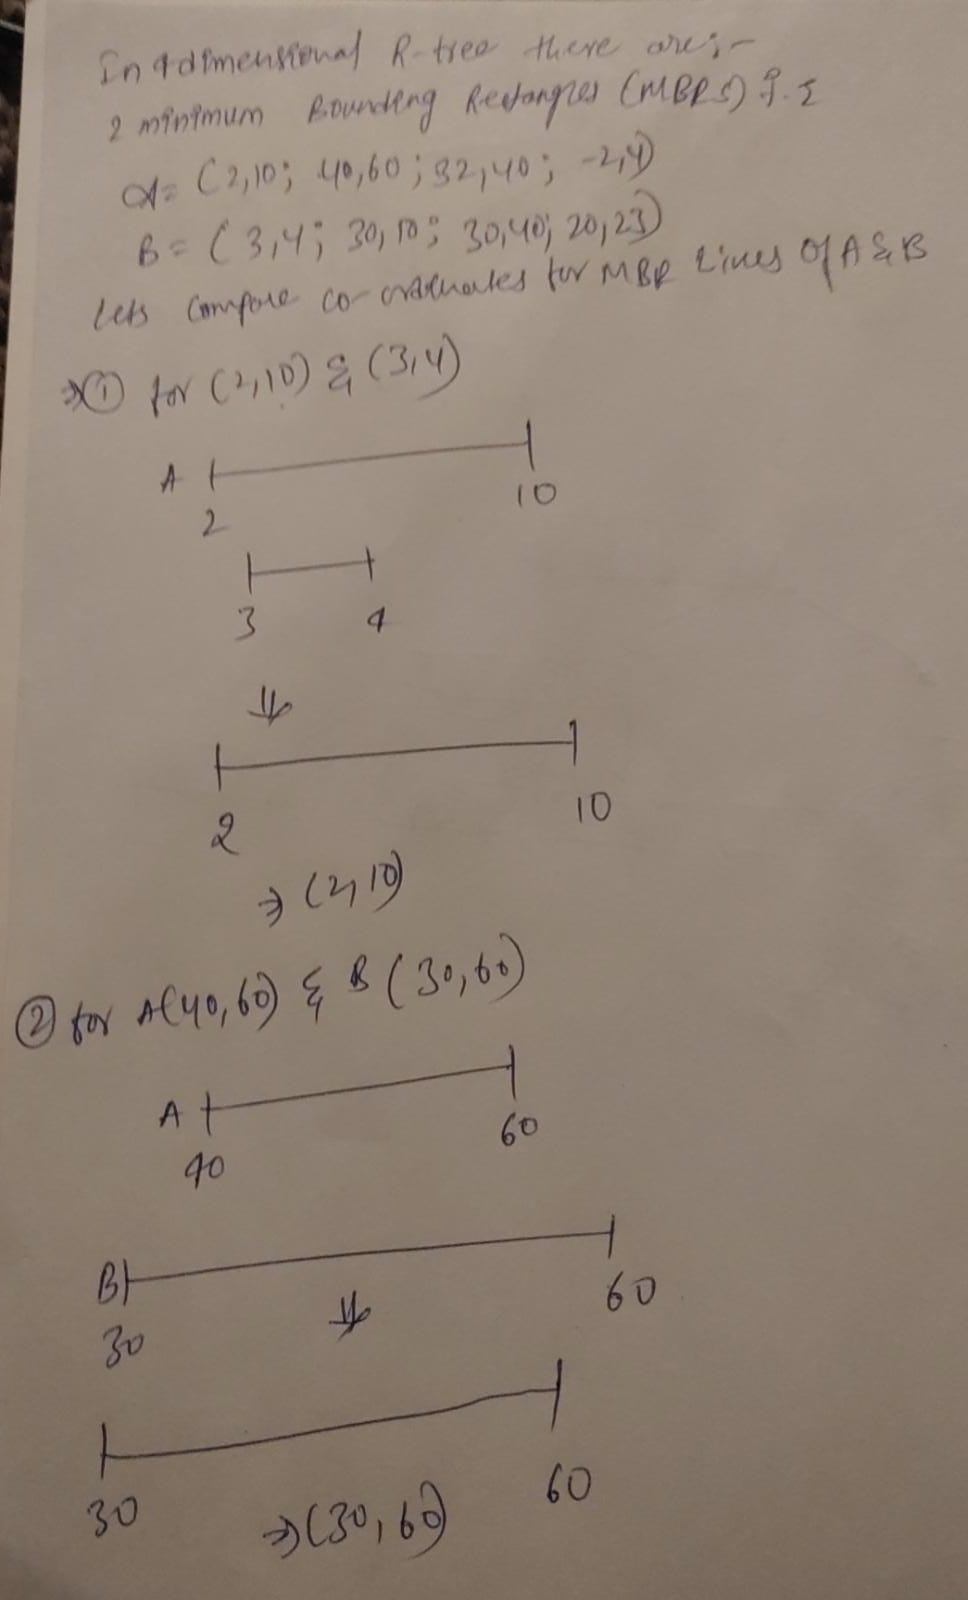 In 4 dimensional R-tree there are:-
2 minimum Bounding Rectangles (MBRS) i.e
A = (2,10; 40,60; 32,40; -2,4)
B = (3,4; 30,10; 30,40; 20,23)
Lets compare co-ordinates for MBR Lines of A & B
⇒ ① for (2,10) & (3,4)
A
2
10
3
4
⇓
2
10
⇒ (2,10)
② for A(40,60) & B (30,60)
A
40
60
B
30
60
⇓
30
60
⇒ (30,60)